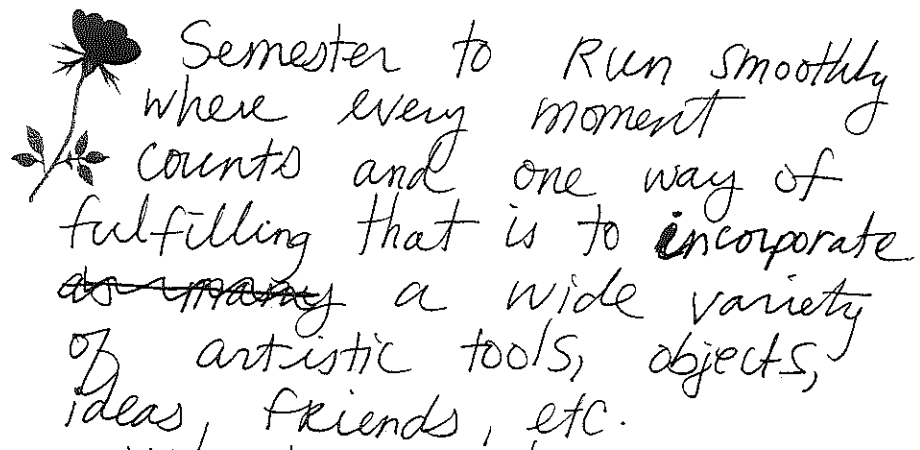 Semester to Run smoothly
where every moment
counts and one way of
fulfilling that is to incorporate
as many a wide variety
of artistic tools, objects,
ideas, friends, etc.